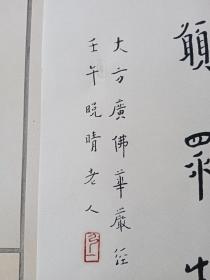 願眾
大方廣佛華嚴經
壬午晚晴老人